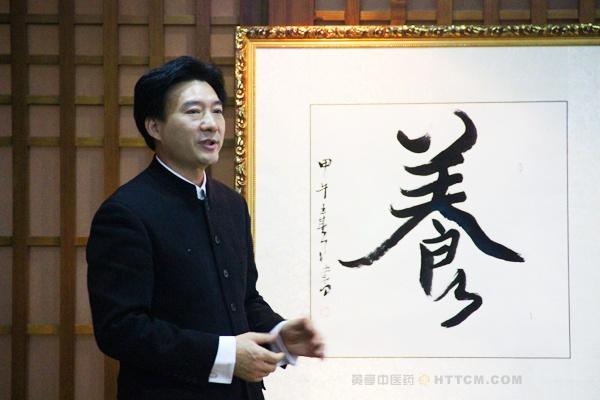 養
甲午
中医药 HTTCM.COM